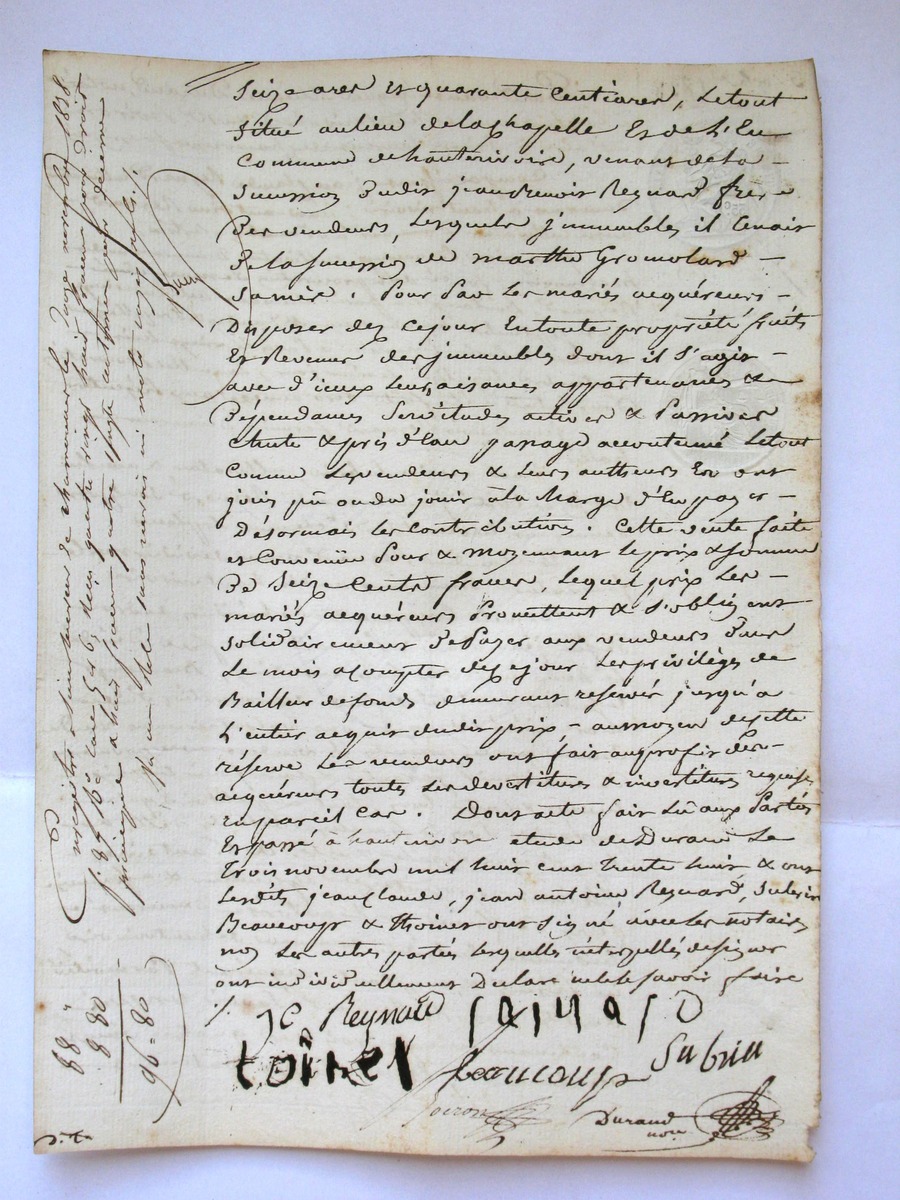 Seize ares et quarante Centiares, Letout
Situé aulieu delachapelle Et de L'En
Commune de hauterivoire, venant dela
Succession dudit jean Benoit Reynard frère
Des vendeurs, Lesquels jmmeubles il tenait
Delasuccession de marthe Gromolard
Samère. Pour Par Les mariés acquéreurs
Disposer dez cejour Entoute propriété fruits
Et Revenus des jmmeubles dont il s'agit
avec d'iceux leurs aisances appartenances &
Dépendances Servitudes actives & Passives
chute & près d'Eau passage accoutumé Letout
Comme Lesvendeurs & Leurs autheurs En ont
joui pû ou du jouir àla Charge d'En payer
Désormais les Contributions. Cette vente faite
et Convenüe Pour & moyennant le prix & somme
De Seize Cents francs, lequel prix Les
mariés acquéreurs Promettent & s'obligent
Solidairement DePayer aux vendeurs Dans
Le mois acompter dez cejour Lesprivilèges de
Bailleur defonds demeurant reservés jusqu'a
L'entier acquit dudit prix - aumoyen decette
réserve Les vendeurs ont fait auprofit Des
acquéreurs toutes Les devestitures & investitures requises
Enpareil Cas. Dont acte fait Lû aux Parties
Et passé à hauterivoire etude de Durand Le
Trois novembre mil huit cent trente huit & ont
Lesdits jeanclaude, jean antoine Reynard, Subrin
Beaucoup & thoinet ont Signé avec les notaires
non Les autres parties lesquelles interpellés designer
ont individuellement Déclaré nele savoir faire
J C Reynard
toinet Beaucoup Subrin
Durand
not
Enregistré à Saint Laurent de chamousset le douze novembre 1838
Reçu quatre vingt huit francs pour droit
88 "
8 80
96 = 80